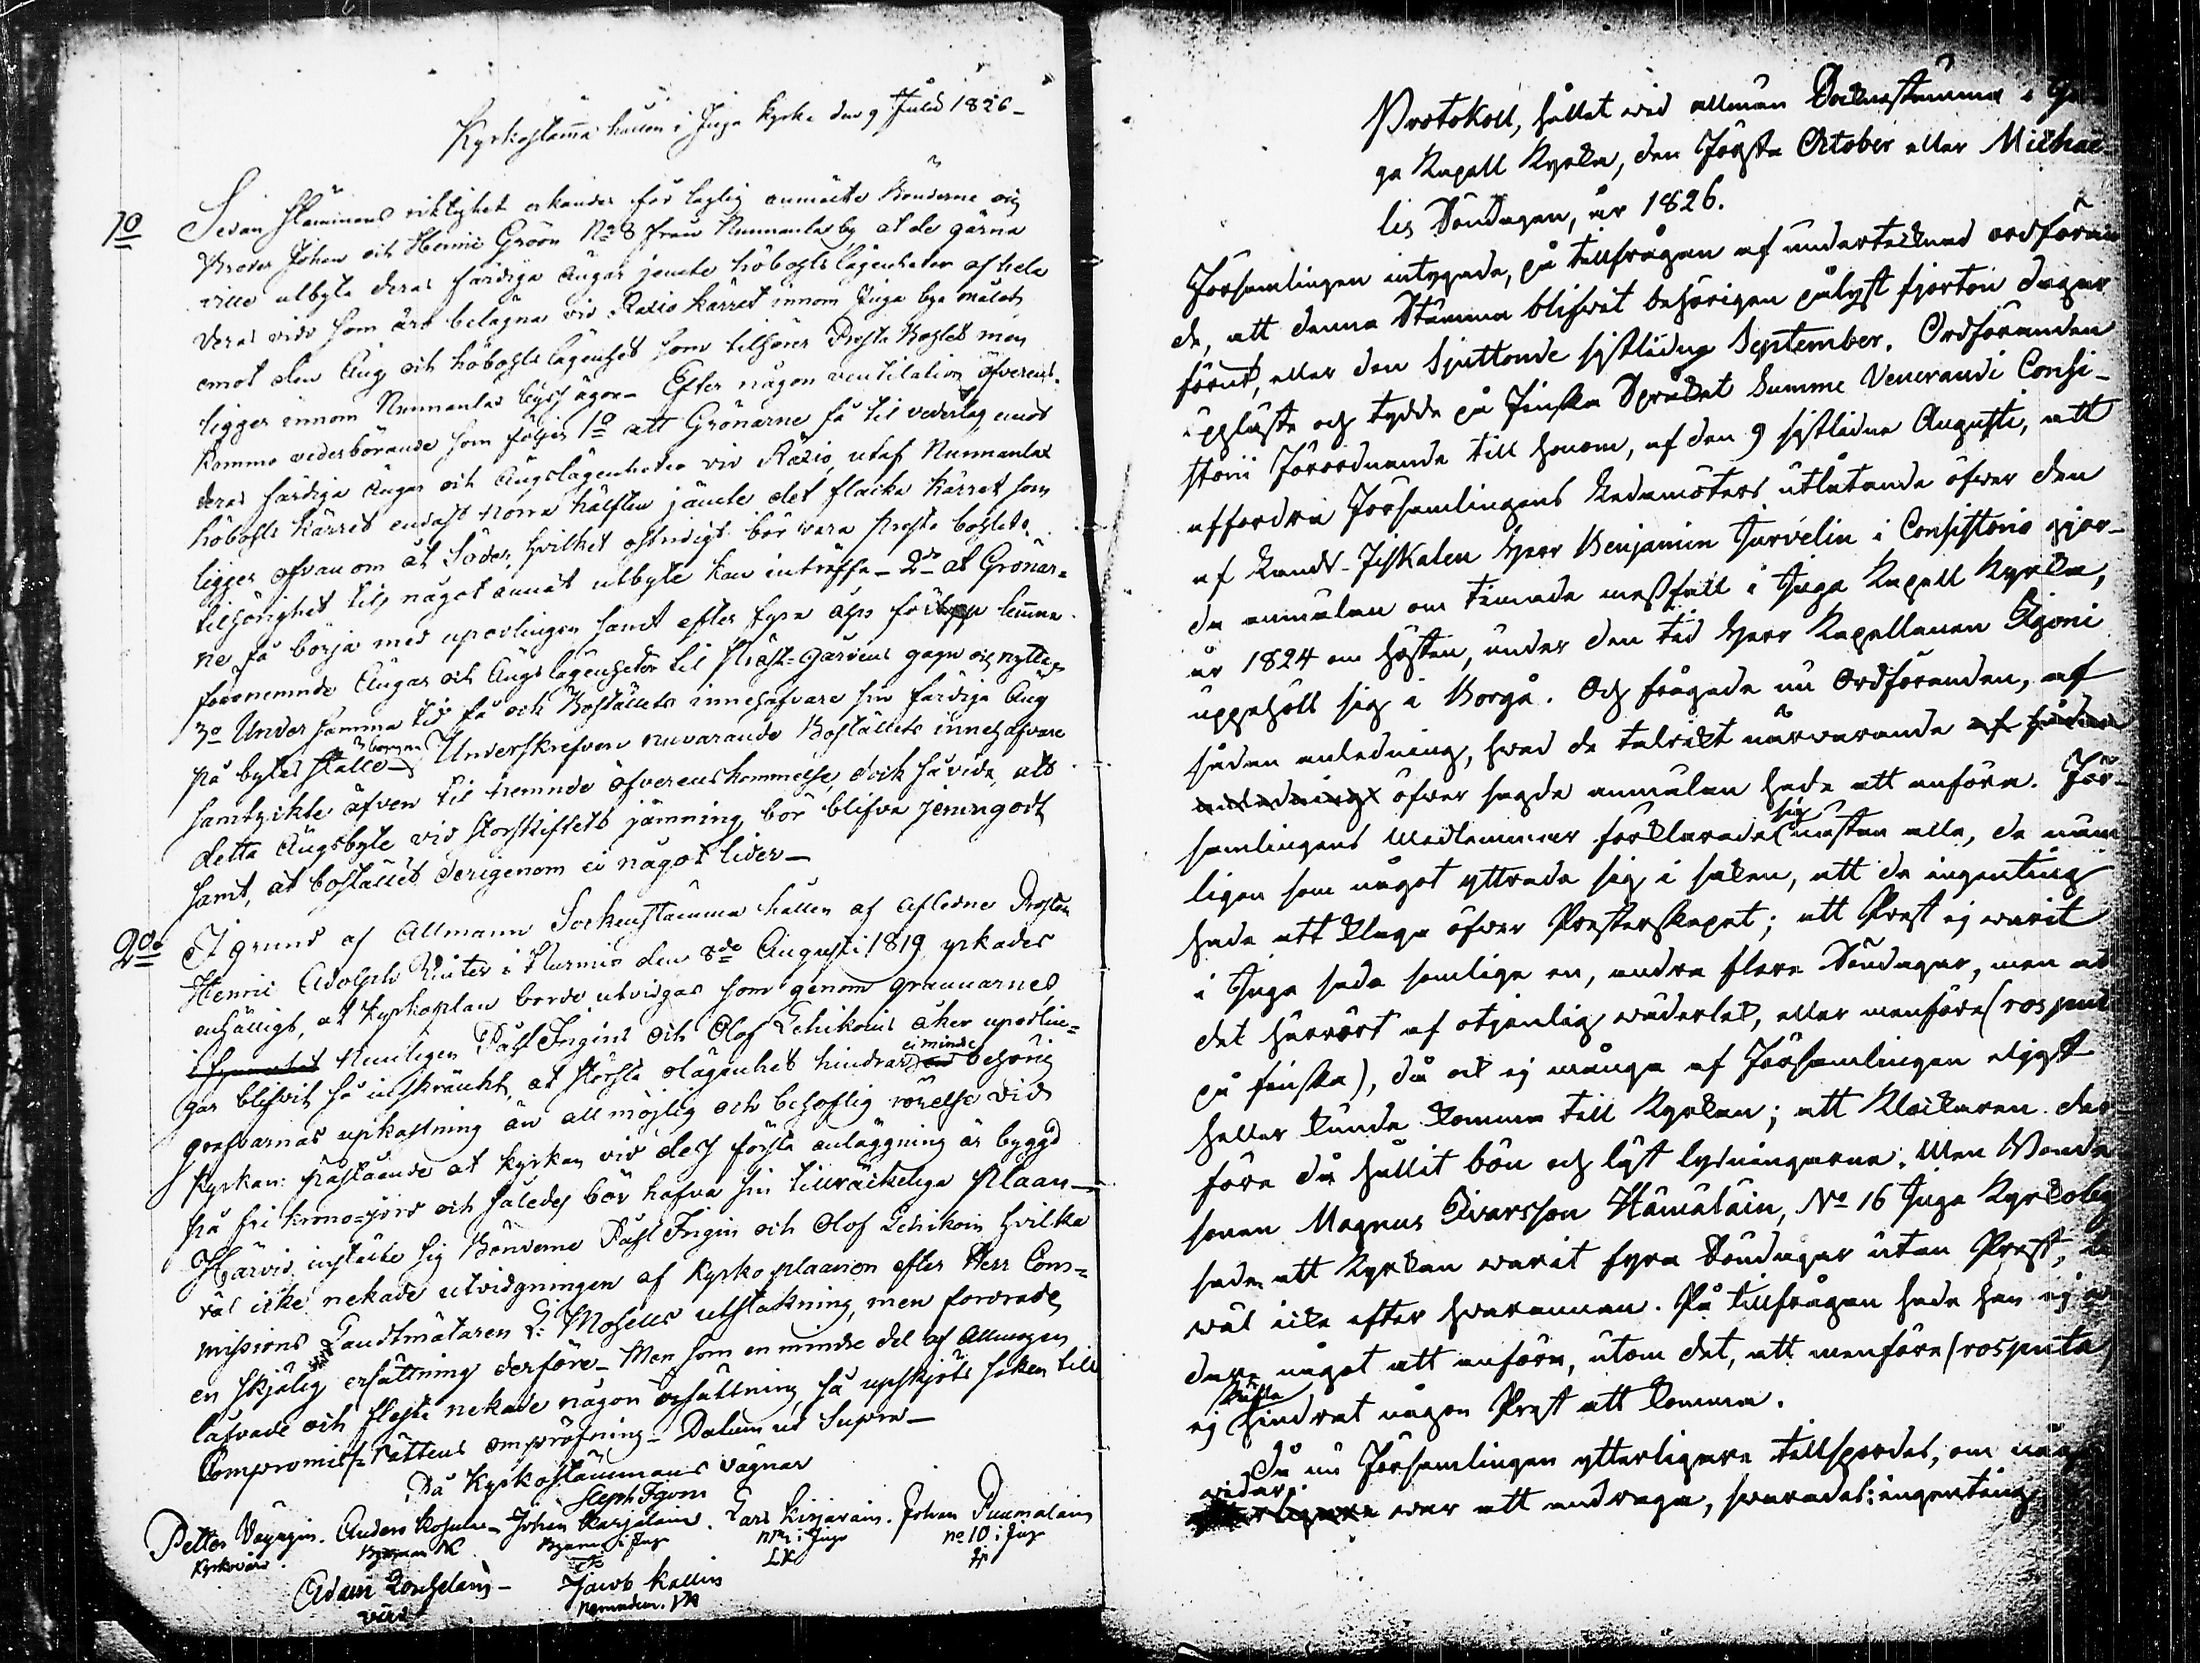 Kyrkostämma hållen i Juga kyrka den 9 Julii 1826 –
1o Sedan Stämmans riktighet erkändes för laglig anmälte Bönderne och
Bröder Johan och Henric Gröön No 8 från Nunnanlax by at de gärna
ville utbyta deras färdiga Ängar jemte höbohls lägenheter af hela
deras vidd som äro belägna vid Raxio kärret innom Juga bys målat
emot den Äng och höbohls lägenhet som tilhörer Presta Bohlet men
ligger innom Nunnanlax bys ägor – Efter någon ventilation öfverens-
kommo vederbörande som följer 1o att Grönarne få til vederlag emot
deras färdiga Ängar och Ängslägenheter vid Raxio, utaf Nunnanlax
höbohls kärret endast norra hälften jämte det flacka kärret som
ligger ofvan om åt Söder, hvilket ostridigt bör vara Presta bohlets
tilhörighet tils något annat utbyte kan inträffa – 2o at Grönar-
ne få börja med uparlingen samt efter fyra års förlopp lemna
förenemnde Ängar och Ängslägenheter til Präst-gårdens gagn och nytta,
3o Under samma tid få och Boställets innehafvare sin färdiga Äng
på bytes ställe – Underskrefven nuvarande Boställets innehafvare
samtyckte äfven til nemnde öfverenskommelse, dock såvida, att
detta Ängsbyte vid storskiftets jämning bör blifva jemngodt
samt, at bostället derigenom ei något lider –
2o I grund af Allmänn Sockenstämma hållen af afledne Prosten
Henric Adolph Winter i Nurmis den 8de Augusti 1819 yrkades
enhälligt, at kyrkoplan borde utvidgas som genom grannarnes
nemligen Påhl Jngins och Olof Lehikoins åker uparlin-
gar blifvit så inskränkt, at största olägenhet hindrar ei mindre behörig
grafvarnas upkastning än all möjlig och behöflig rörelse vid
Kyrkan: påstående at kyrkan vid des första anläggning är byggd
på fri krono-jord och således bör hafva sin tillräckeliga Plaan –
Härvid instälte sig Bönderne Påhl Jngin och Olof Lehikoin hvilka
väl icke nekade utvidgningen af Kyrkoplaanen efter Herr Com-
missions Landtmätaren L: Mosells utstakning, men fordrade
en skjälig ersättning derföre – Men som en mindre del af Allmogen
låfvade och flesta nekade någon ersättning, så upskjöts saken till
Compromiss-Rättens ompröfning – Datum ut Supra –
På Kyrkostämmans vägnar
Steph Igoni
Petter Väyrynin. Anders Kosunen – Johan Karjalain. Lars Kinnarain. Johan Puumalain
Kyrkovärd. Bym i Jug No i Juga No 10 i Jug
LK
Adam Ronghelain – Jacob Kallin
värd Nemndem.
Protokoll, hållet wid allmän Sockenstämma i Ju-
ga Kapell Kyrka, den Första October eller Michae-
lis Söndagen, år 1826.
Församlingen intygade, på tillfrågan af undertecknad ordföran-
de, att denna Stämma blifwit behörigen pålyst fjorton dagar
förut, eller den Sjuttonde sistlidne September. Ordföranden
uppläste och tydde på Finska Språket Summe Venerandi Consi-
storii Förordnande till honom, af den 9 sistlidne Augusti, att
affordra Församlingens Ledamöters utlåtande öfwer den
af Lands-Fiskalen Herr Benjamin Järvelin i Consistorio gjor-
da anmälan om timade messfall i Juga Kapell Kyrka,
år 1824 om hösten, under den tid Herr Kapellanen Igoni
uppehöll sig i Borgå. Och frågade nu Ordföranden, af
sådan anledning, hwad de talrikt närwarande af sådan
anledning öfwer sagde anmälan hade att anföra. För-
samlingens Medlemmar förklarade sig nästan alla, de näm-
ligen som något yttrade sig i saken, att de ingenting
hade att klaga öfwer Presterskapet; att Prest ej warit
i Juga sade somlige en, andra flera Söndagar, men at
det härrört af otjenlig wäderlek, eller menföre (rospuut
på finska), då ock ej många af Församlingen eljest
heller kunde komma till Kyrkan; att Klockaren der-
före då hållit bön och läst lysningarne. Men Bonde
sonen Magnus Iivarsson Hämäläin, No 16 Juga Kyrkoby
sade att Kyrkan warit fyra Söndagar utan Prest,
wäl icke efter hwarannan. På tillfrågan hade han ej
dare något att anföra, utom det, att menföre (rospuuta
ej hindrat någon Prest att komma.
Då nu Församlingen ytterligare tillspordes, om någ
widare war att andraga, swarades: ingenting